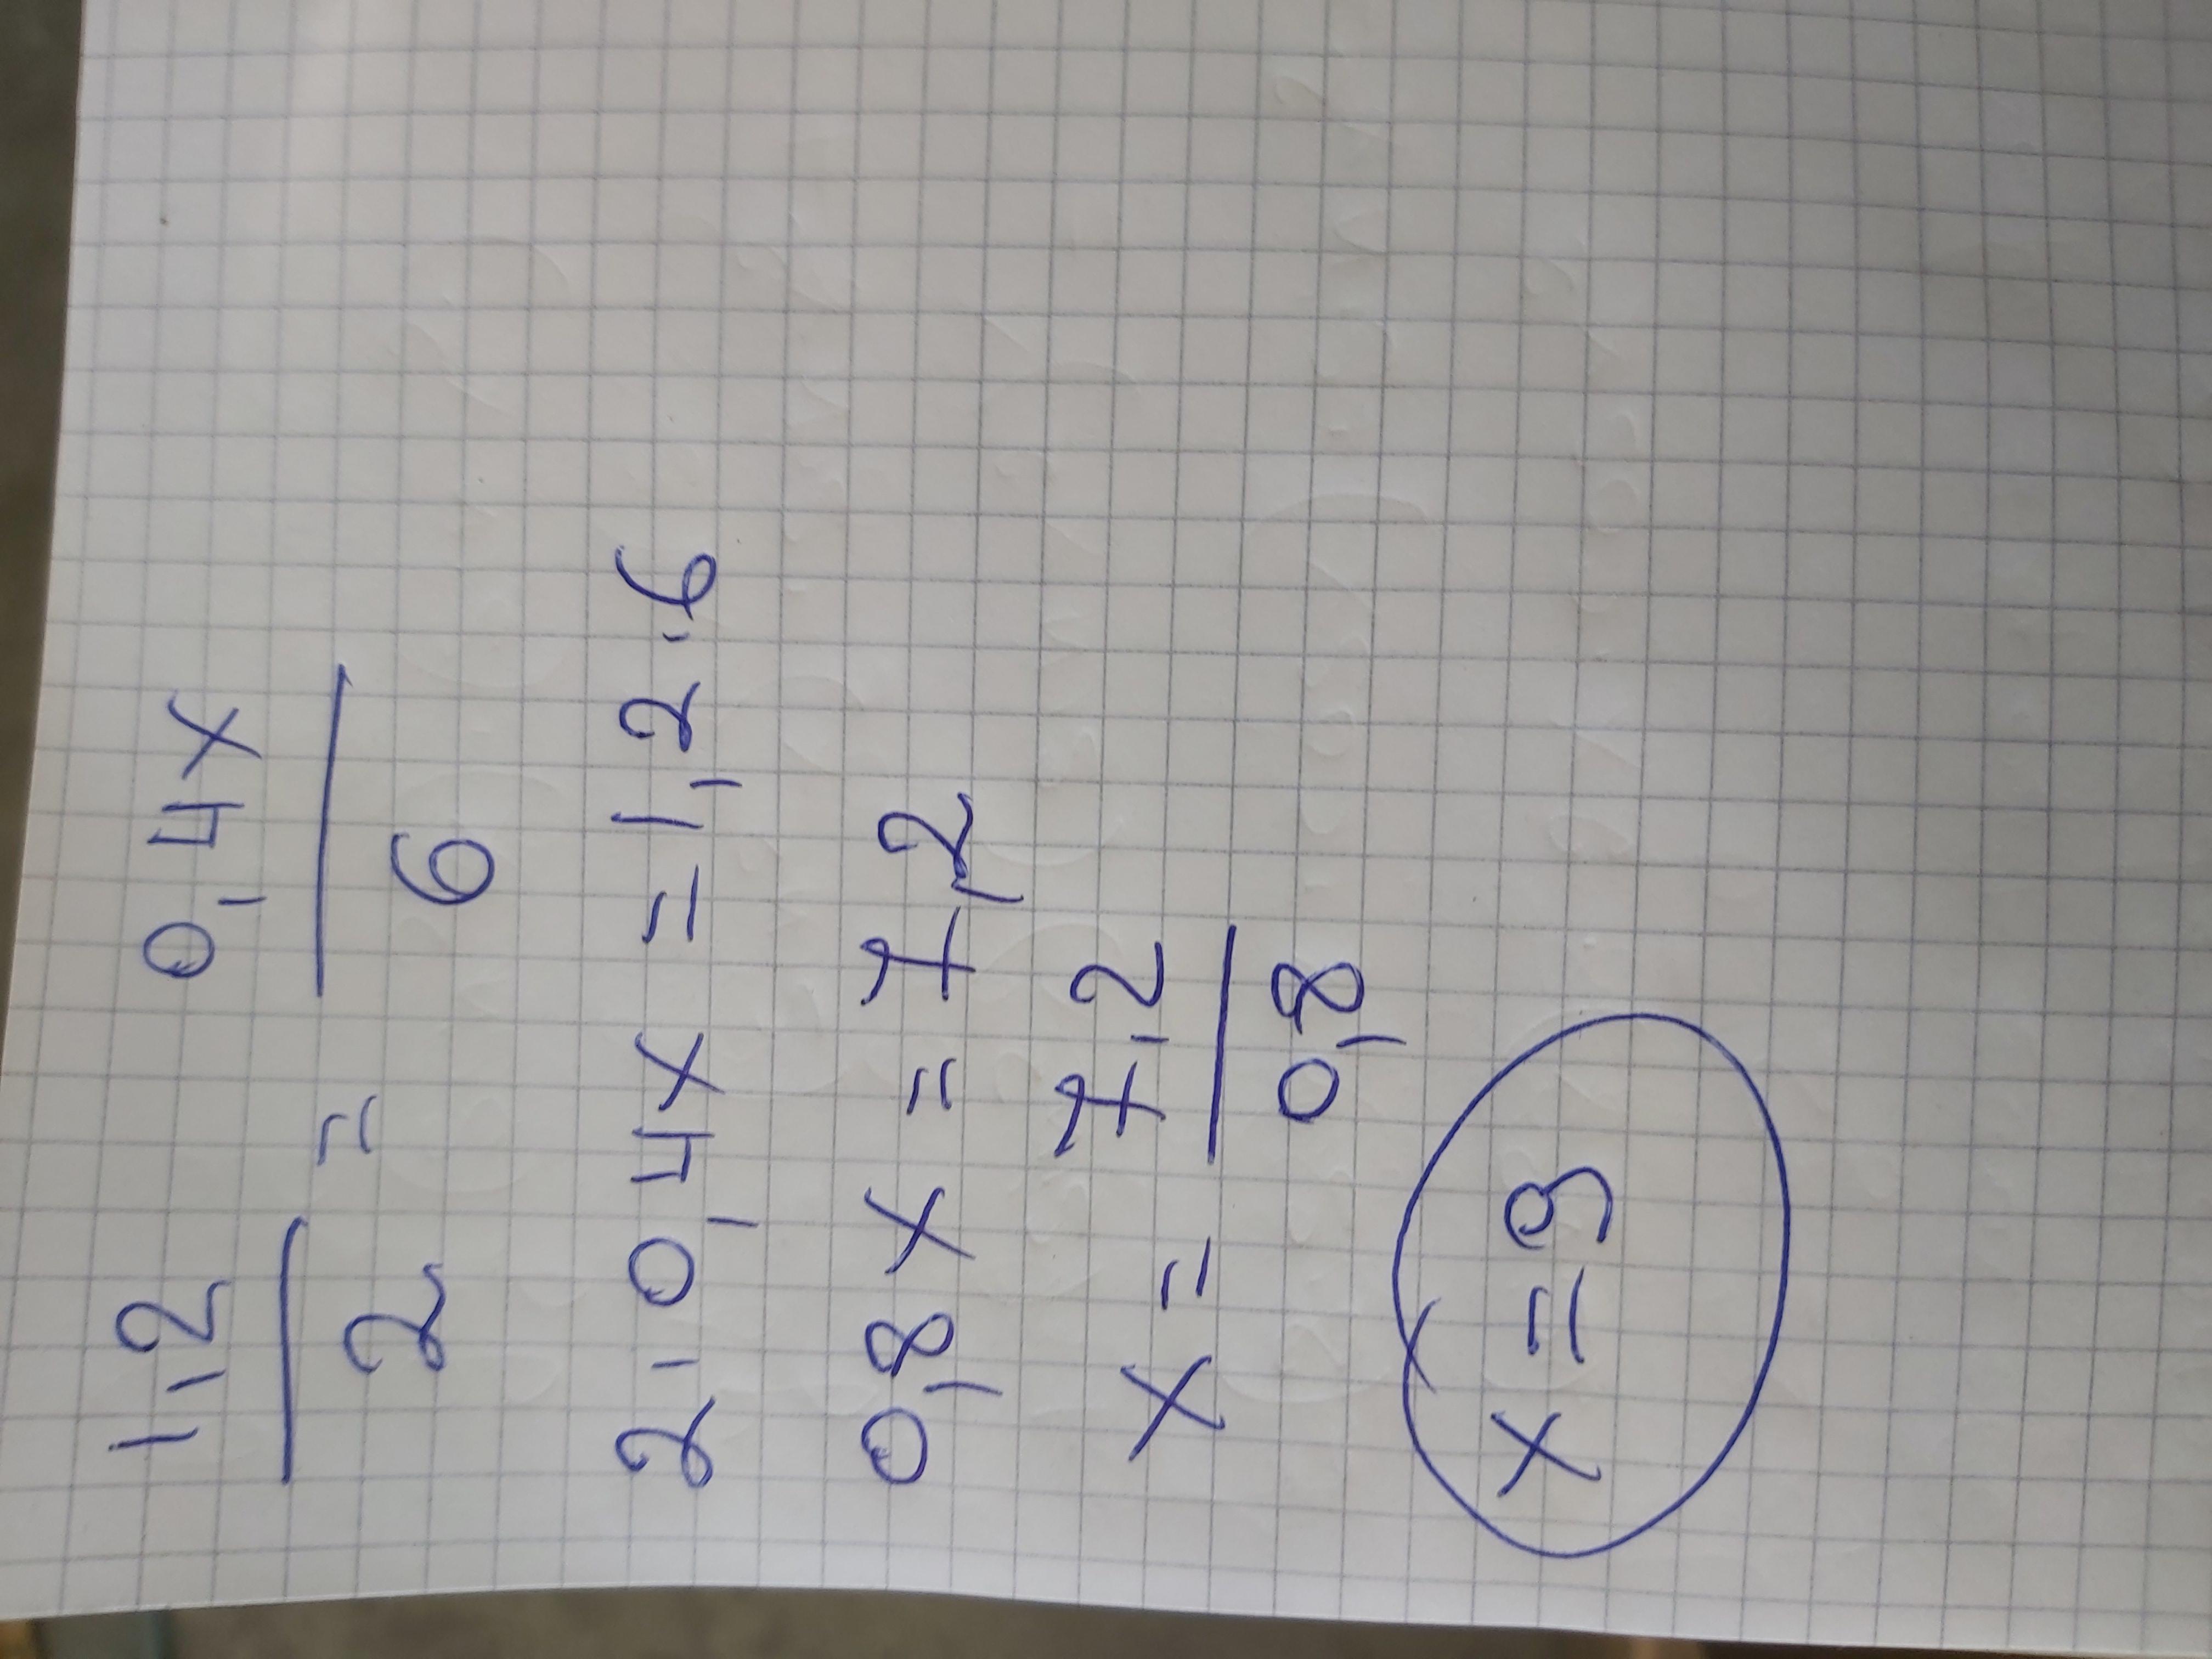 1,2/2 = 0,4x/6
2·0,4x = 1,2·6
0,8x = 7,2
x = 7,2/0,8
x = 9